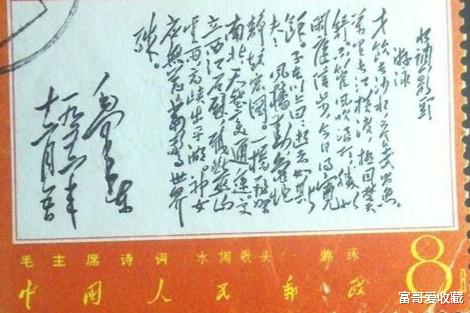 水调歌头
游泳
才饮长沙水又食武昌鱼
万里长江横渡极目楚天
舒不管风吹浪打胜似
闲庭信步今日得宽
馀。子在川上曰逝者如斯
夫！风樯动龟蛇
静起宏图一桥飞架
南北天堑变通途更
立西江石壁截断巫山
云雨高峡出平湖神女
应无恙当惊世界
殊
毛泽东
一九五六年
十二月五日
毛主席诗词·水调歌头·游泳
中国人民邮政
8
富哥爱收藏